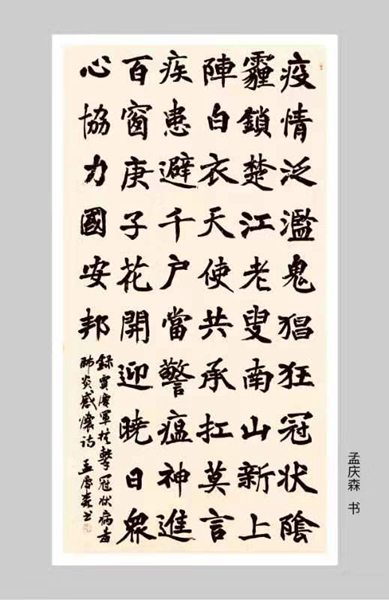 疫情泛濫鬼猖狂冠状陰
霾鎖楚江老叟南山新上
陣白衣天使共承扛莫言
疾患避千户當警瘟神進
百窗庚子花開迎曉日衆
心協力國安邦
錄慶軍抗擊冠状病毒
肺炎感懷詩 孟慶森书
孟庆森 书